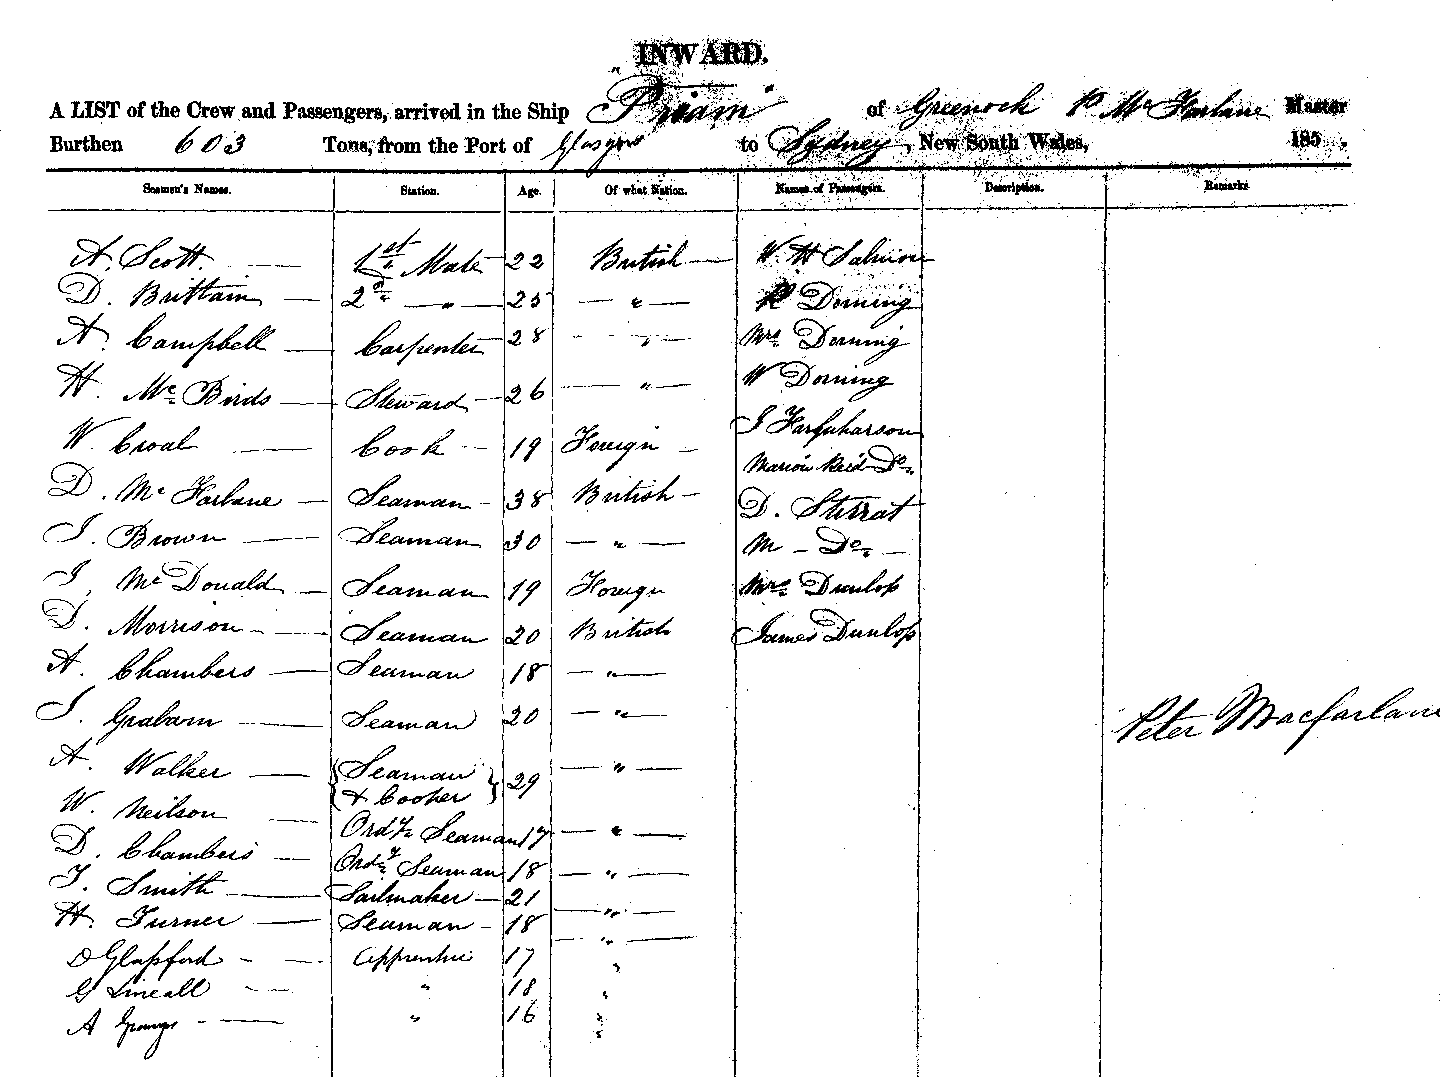 INWARD.
A LIST of the Crew and Passengers, arrived in the Ship "Priam" of Greenock P McFarlane Master
Burthen 603 Tons, from the Port of Glasgow to Sydney, New South Wales, 185 .
Seamen's Names. Station. Age. Of what Nation. Names of Passengers. Description. Remarks
A. Scott. — 1st Mate 22 British — W. H Salmon
D. Brittain — 2nd — " — 25 — " — R Dorning
A. Campbell — Carpenter 28 — " — Mrs Dorning
H. Mc Birds — Steward — 26 — " — W Dorning
W. Croal — Cook — 19 Foreign — J Farquharson
D. Mc Farlane — Seaman — 38 British — Marion Reid Do
J. Brown — Seaman 30 — " — D. Sterrat
J. McDonald — Seaman 19 Foreign M — Do —
D. Morrison — Seaman 20 British Mrs Dunlop
A. Chambers — Seaman 18 — " — James Dunlop
J. Graham — Seaman 20 — " —
Peter Macfarlane
A. Walker — { Seaman & Cooper } 29 — " —
W. Neilson — Ordy Seaman 17 — " —
D. Chambers — Ordy Seaman 18 — " —
J. Smith — Sailmaker — 21 — " —
H. Turner — Seaman — 18 — " —
D Glassford — Apprentice 17 "
G Lincall — " 18 "
A — " 16 "